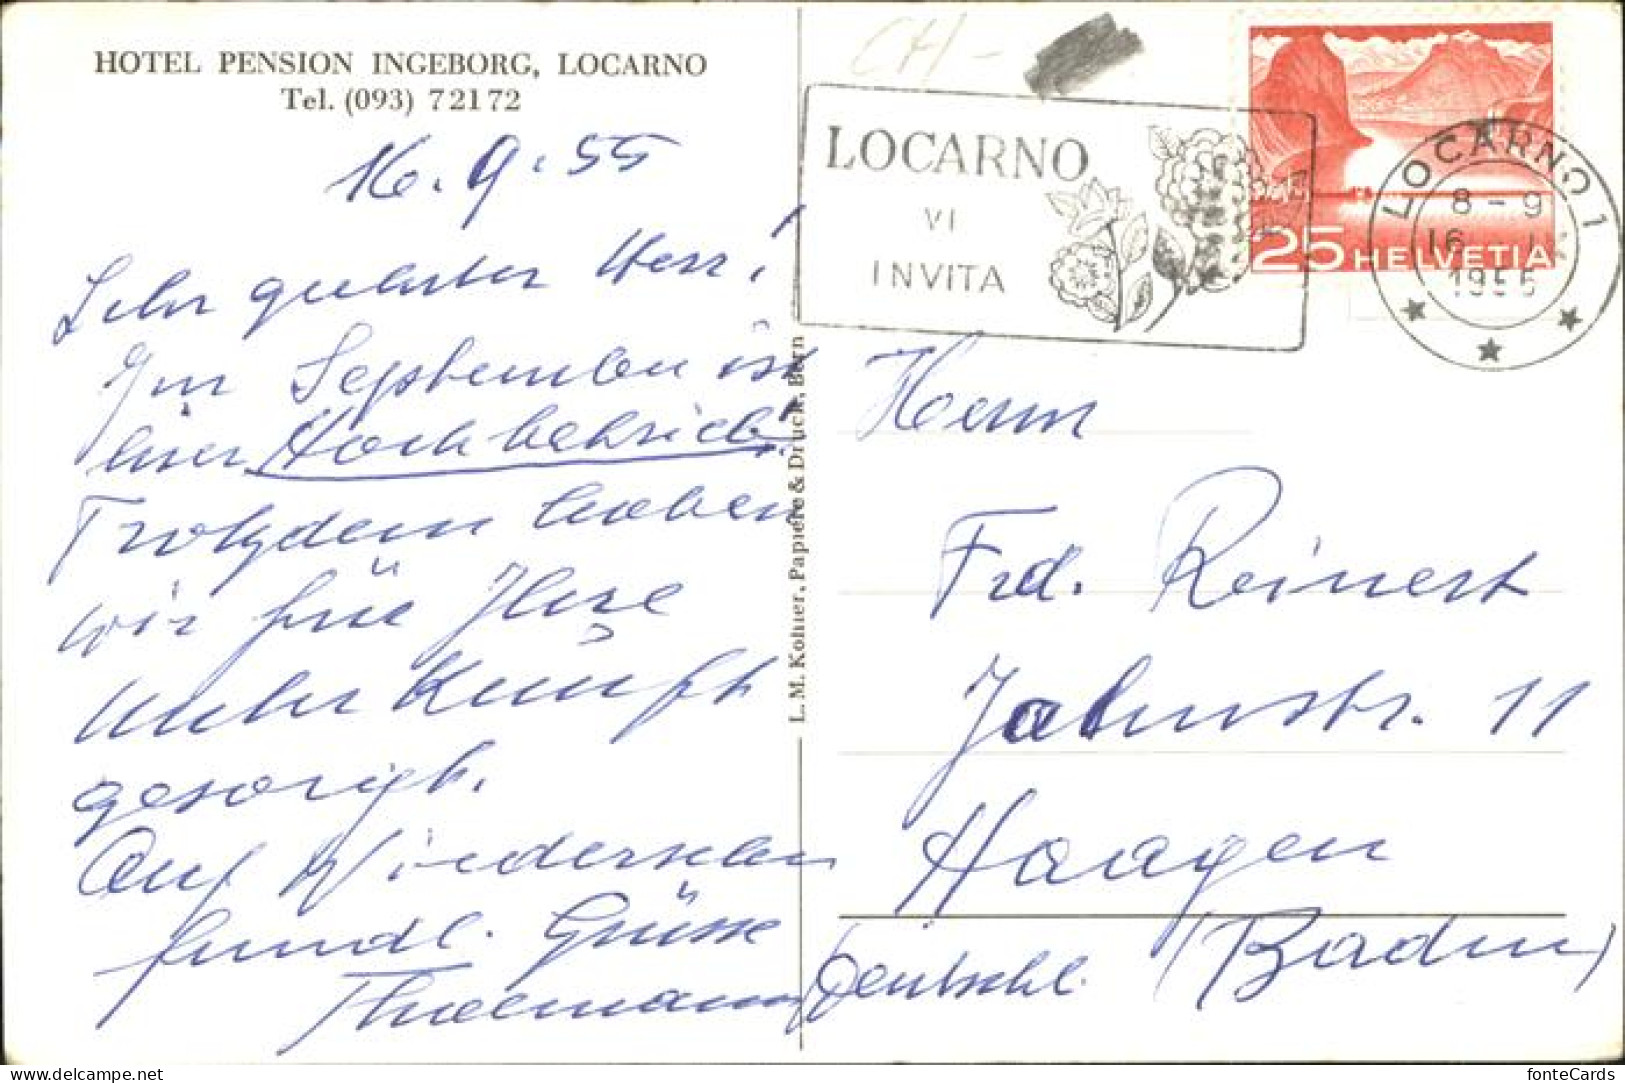 HOTEL PENSION INGEBORG, LOCARNO
Tel. (093) 7 21 72
16.9.55
Sehr geehrter Herr!
Im September ist
hier Hochbetrieb!
Trotzdem haben
wir für Ihre
Unterkunft
gesorgt.
Auf Wiedersehen
freundl. Grüsse
Thielemann
L. M. Kohler, Papiere & Druck, Bern
CH -
LOCARNO
VI
INVITA
25 HELVETIA
LOCARNO 1
8 - 9
16 IX
1955
Herrn
Frd. Reinert
Jahnstr. 11
Haagen
(Baden)
Deutschl.
fonteCards